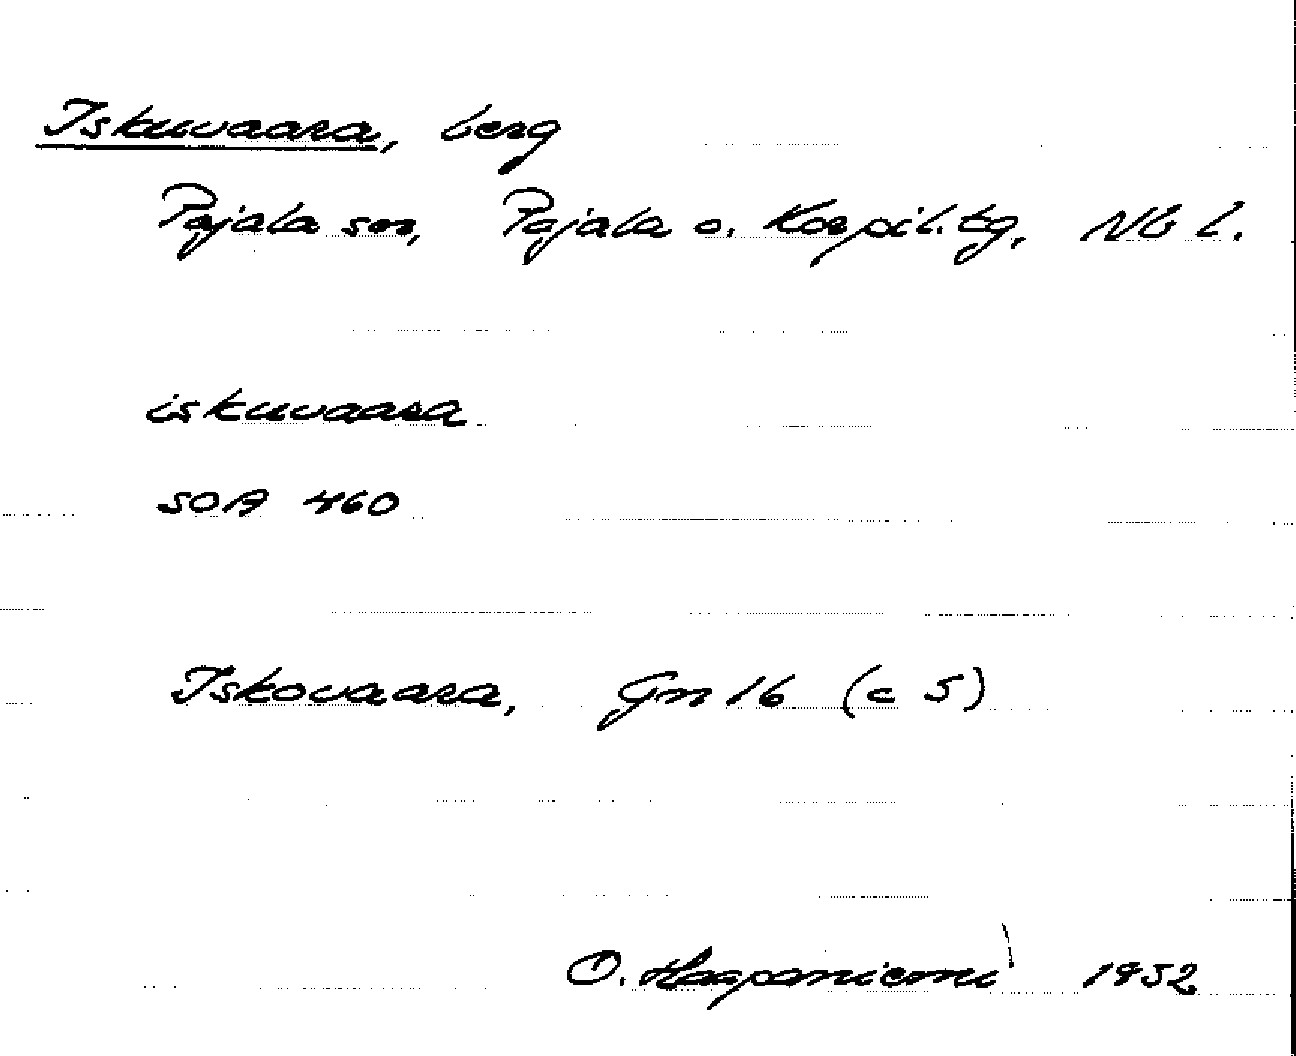 Iskuvaara, berg
Pajala sn, Pajala o. Korpil. tg, Nb l.
iskuvaara
SOA 460
Iskovaara, Gn 16 (c 5)
O. Haapaniemi 1952